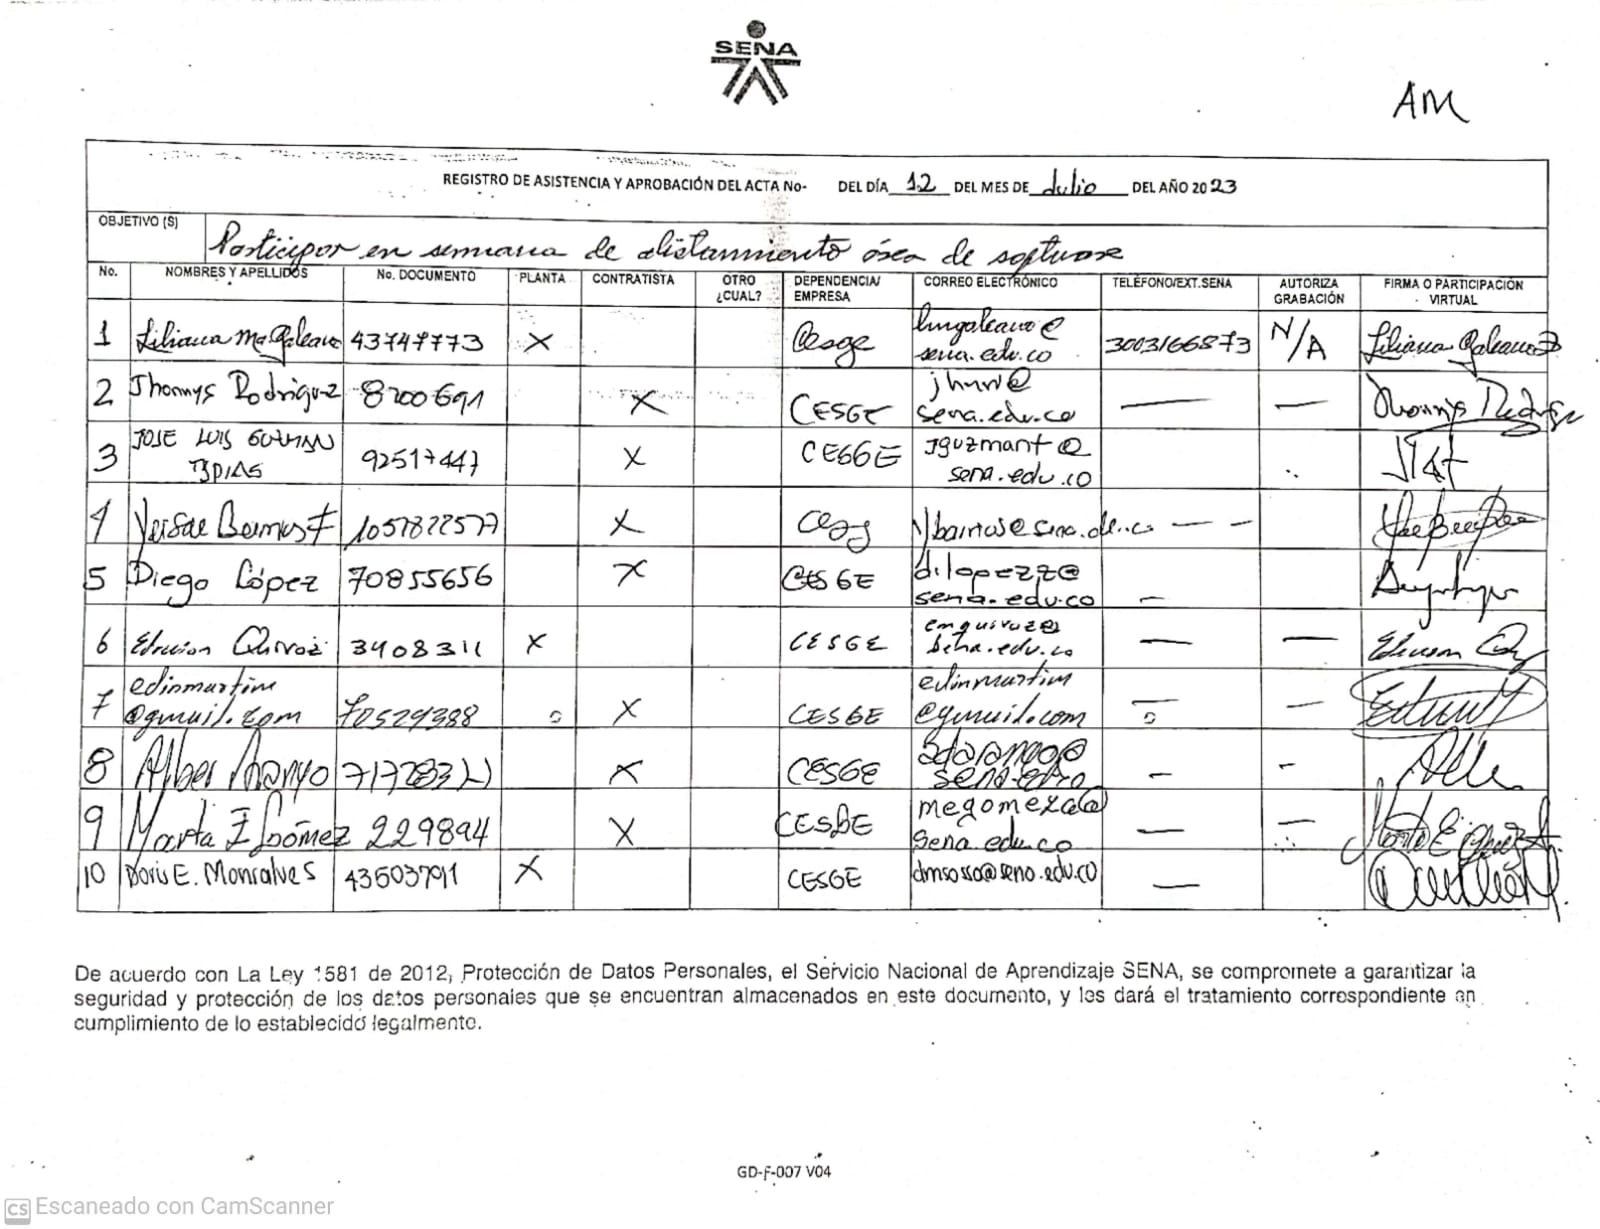 SENA
AM
REGISTRO DE ASISTENCIA Y APROBACIÓN DEL ACTA No- DEL DÍA 12 DEL MES DE Julio DEL AÑO 2023
OBJETIVO (S)
Participar en semana de alistamiento área de software
No. NOMBRES Y APELLIDOS No. DOCUMENTO PLANTA CONTRATISTA OTRO ¿CUAL? DEPENDENCIA/ EMPRESA CORREO ELECTRÓNICO TELÉFONO/EXT.SENA AUTORIZA GRABACIÓN FIRMA O PARTICIPACIÓN VIRTUAL
1 Liliana Ma Galeano 43747773 X Cesge lmgaleano@ sena.edu.co 3003166873 N/A Liliana Galeano
2 Jhonnys Rodriguez 8200691 X CESGE sena.edu.co — —
3 JOSE LUIS GUZMAN 92517447 X CESGE jguzmant@ sena.edu.co
4 1051822577 X
5 Diego López 70855656 X CESGE dilopezz@ sena.edu.co —
6 3408311 X CESGE sena.edu.co — —
7 edinmartim @gmail.com 70529388 X CESGE edinmartim @gmail.com — —
8 Alber Arango X CESGE adarango@ — —
9 Marta E Gómez 229894 X CESGE megomeza@ sena.edu.co — —
10 Doris E. Monsalves X CESGE —
De acuerdo con La Ley 1581 de 2012, Protección de Datos Personales, el Servicio Nacional de Aprendizaje SENA, se compromete a garantizar la
seguridad y protección de los datos personales que se encuentran almacenados en este documento, y les dará el tratamiento correspondiente en
cumplimiento de lo establecido legalmente.
GD-F-007 V04
CS Escaneado con CamScanner